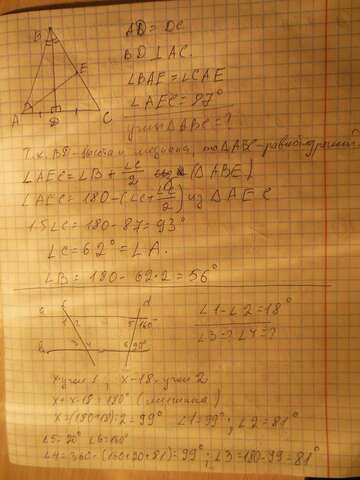 B
E
A
D
C
AD = DC
BD ⊥ AC.
∠BAE = ∠CAE
∠AEC = 87°
углы ΔABC = ?
Т.к. BD - высота и медиана, то ΔABC - равнобедренный.
∠AEC = ∠B + ∠C/2 (ΔABE)
∠AEC = 180 - (∠C + ∠C/2) из ΔAEC
1.5∠C = 180 - 87 = 93°
∠C = 62° = ∠A.
∠B = 180 - 62·2 = 56°
c
d
a
1
2
5
160°
b
3
4
6
∠1 - ∠2 = 18°
∠3 - ? ∠4 = ?
x угол 1 ; x - 18 угол 2
x + x - 18 = 180°
x = (180+18):2 = 99° ∠1 = 99° ; ∠2 = 81°
∠5 = 20° ∠6 = 160°
∠4 = 360 - (160+20+81) = 99° ; ∠3 = 180 - 99 = 81°